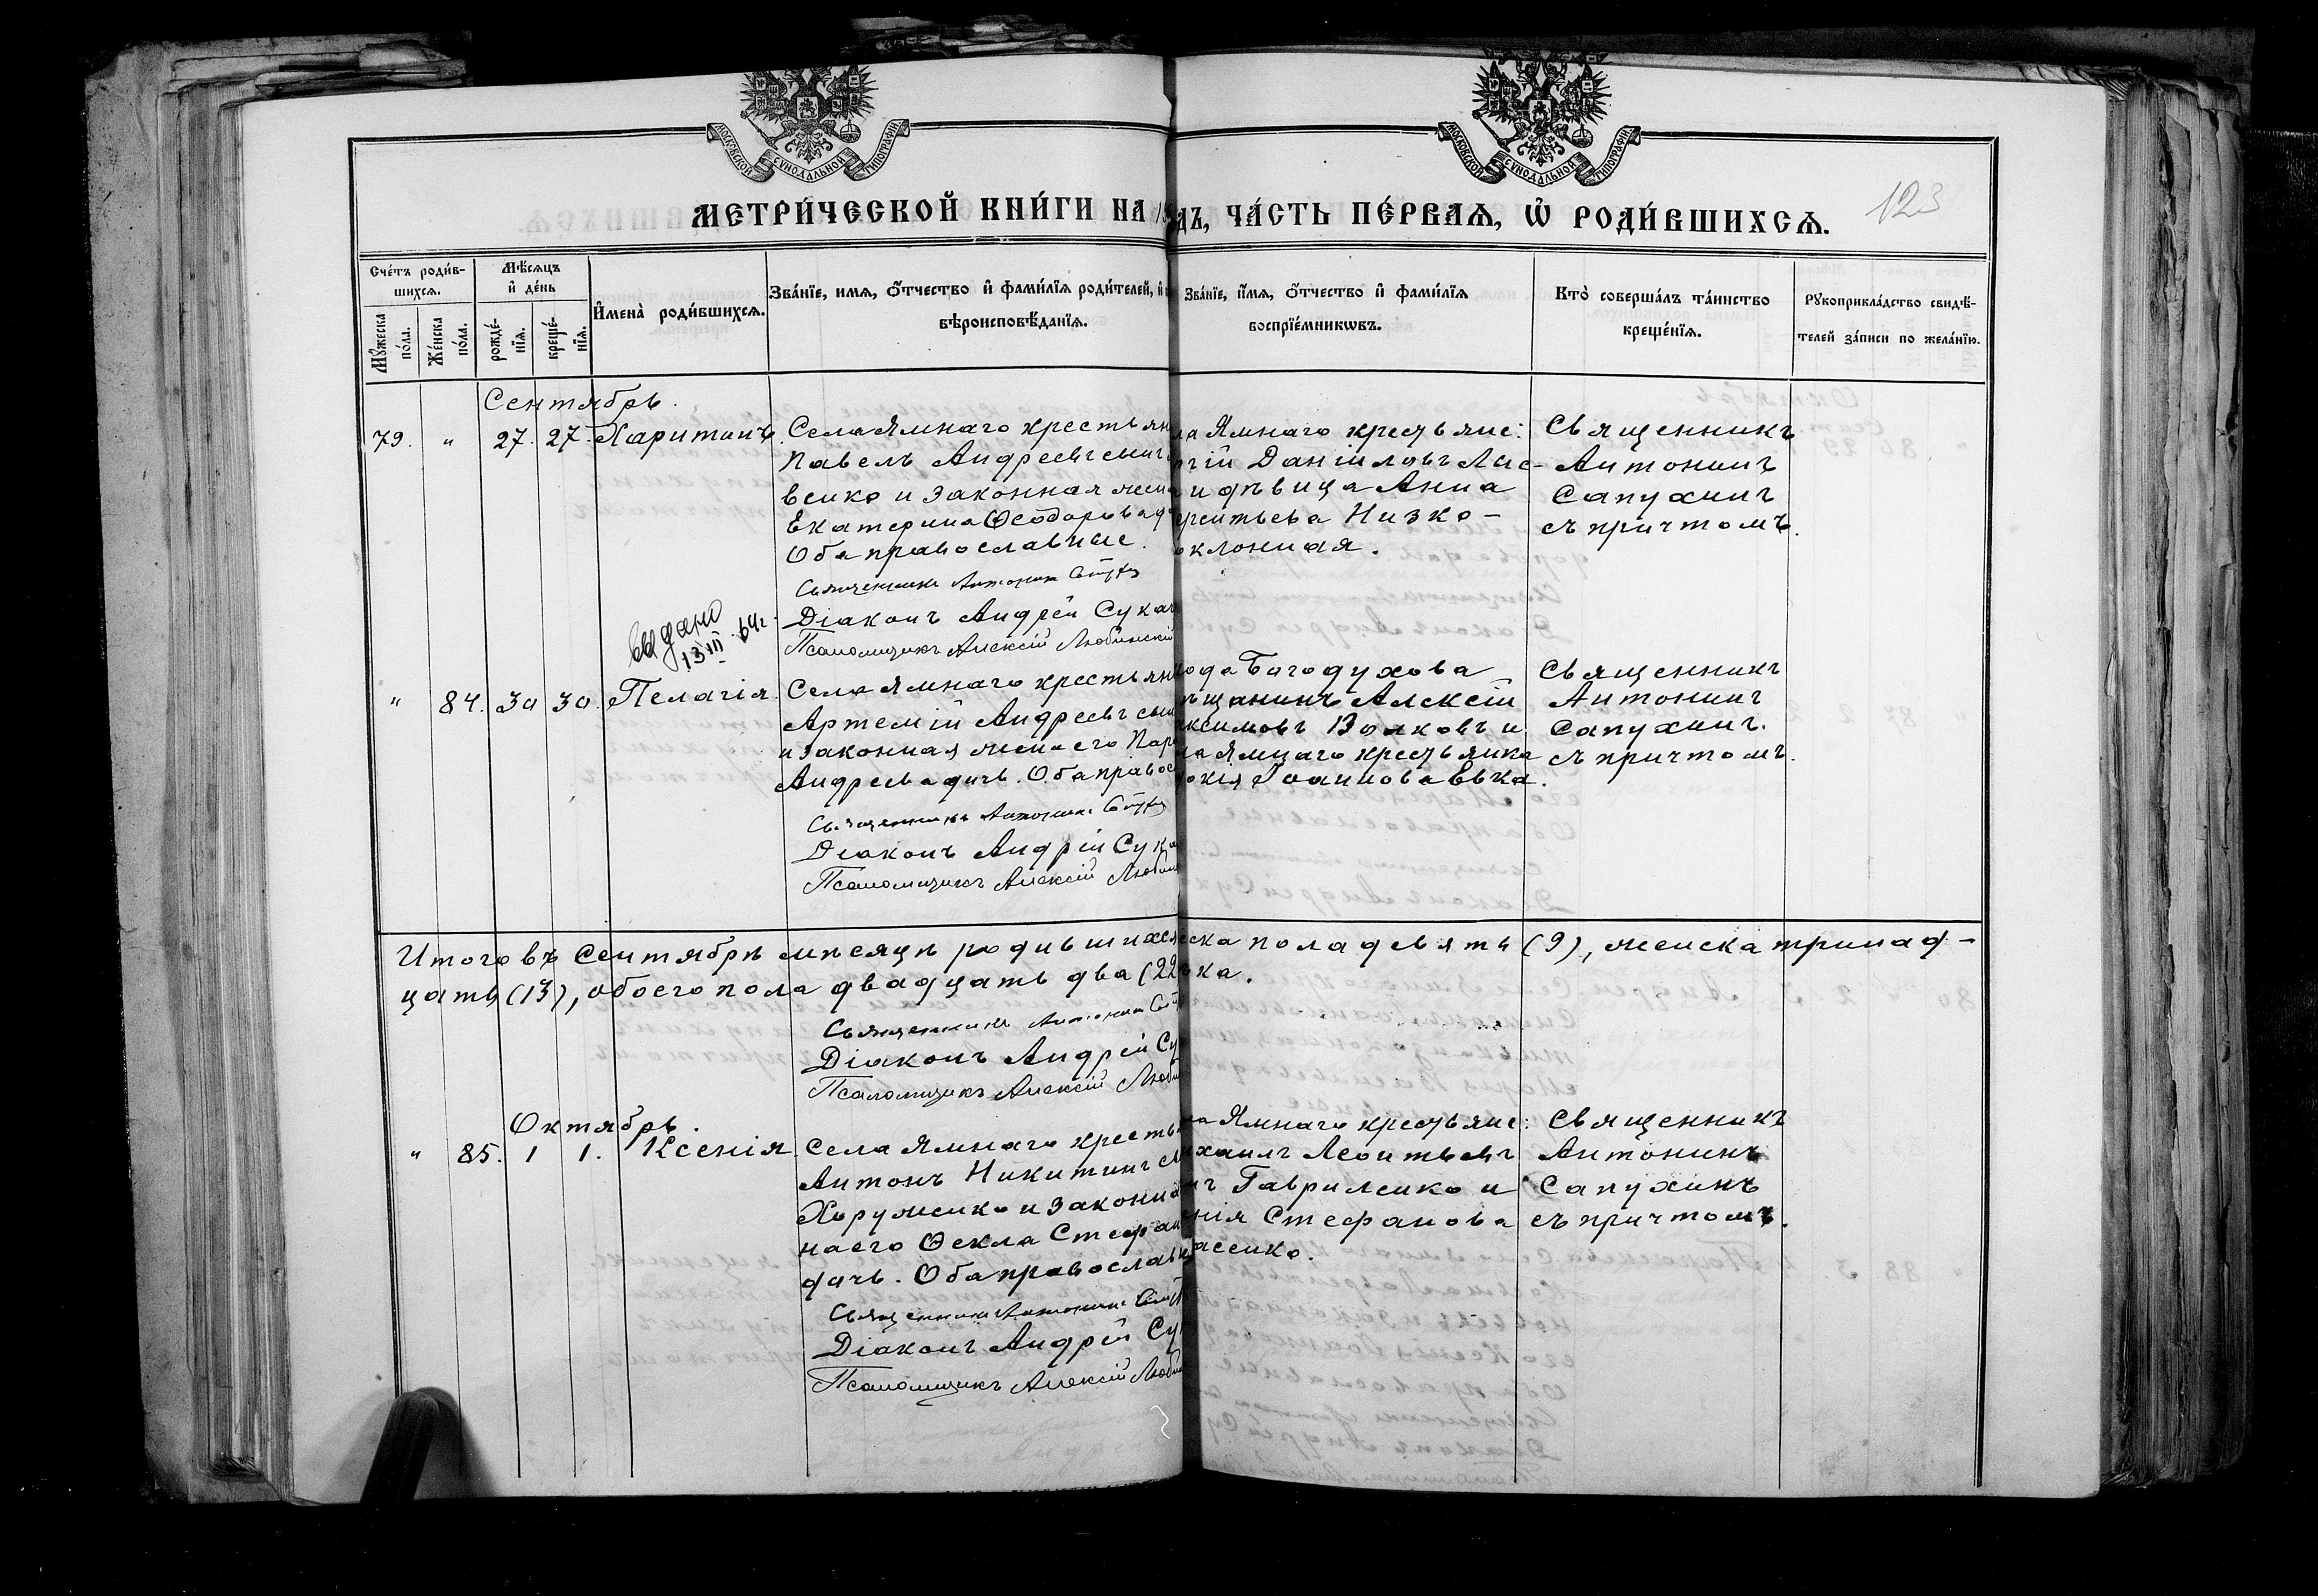 МОСКОВСКОЙ СУНОДАЛЬНОЙ ТИПОГРАФІИ
МОСКОВСКОЙ СУНОДАЛЬНОЙ ТИПОГРАФІИ
123
МЕТРИ́ЧЕСКОЙ КНИ́ГИ НА
ДЪ, ЧА́СТЬ ПЕ́РВАѦ, Ѡ҆ РОДИ́ВШИХСѦ.
Сче́тъ роди́в-
шихсѧ.
Мѣ́сѧцъ
и҆ де́нь
Мꙋ́жеска по́ла.
Же́нска по́ла.
рожде́-нїѧ.
креще́-нїѧ.
И҆мена̀ роди́вшихсѧ.
Зва́нїе, имѧ, о҆́тчество и҆ фами́лїѧ роди́телей,
вѣроисповѣ́данїѧ.
Зва́нїе, и҆́мѧ, о҆́тчество и҆ фами́лїѧ
воспрїе́мникѡвъ.
Кто̀ соверша́лъ та́инство
креще́нїѧ.
Рꙋкоприкла́дство свидѣ́-
телей за́писи по жела́нїю.
Сентябрь.
79. " 27. 27. Харитонъ.
Села Ямнаго крестьян
Павелъ Андреевъ сынъ
венко и законная жена
Екатерина Ѳеодорова
Оба православные.
Священникъ Антонинъ
Діаконъ Андрей Сукач
Псаломщикъ Алексій Любинскій
Ямнаго крестьянс:
Даніиловъ Лис-
и дѣвица Анна
Низко-
клонная.
Священникъ
Антонинъ
Сапухинъ
съ причтомъ.
выдано
13 III 64г.
" 84. 30 30. Пелагія.
Села Ямнаго крестьян
Артемій Андреевъ сын
и законная жена его Пар
Андреева дочь. Оба правос
Священникъ Антонинъ
Діаконъ Андрей Сука
Псаломщикъ Алексій Любин
Богодухова
щанинъ Алексій
ксимовъ Волковъ и
Ямнаго крестьянка
Іоаннова Евка.
Священникъ
Антонинъ
Сапухинъ.
съ причтомъ.
Итого въ Сентябрѣ мѣсяцѣ родившихся
ска пола девять (9), женска тринад-
цать (13), обоего пола двадцать два (22
ка.
Священникъ Антонинъ
Діаконъ Андрей Су
Псаломщикъ Алексій Люби
Октябрь.
" 85. 1 1. Ксенія.
Села Ямнаго кресть
Антонъ Никитинъ
Хоружено и законна
на его Ѳекла Стефан
дочь. Оба православн
Священникъ Антонинъ
Діаконъ Андрей Су
Псаломщикъ Алексій Люби
Ямнаго крестьянс:
хаилъ Леонтьевъ
Гавриленко и
нія Стефанова
асенко.
Священникъ
Антонинъ
Сапухинъ
съ причтомъ.